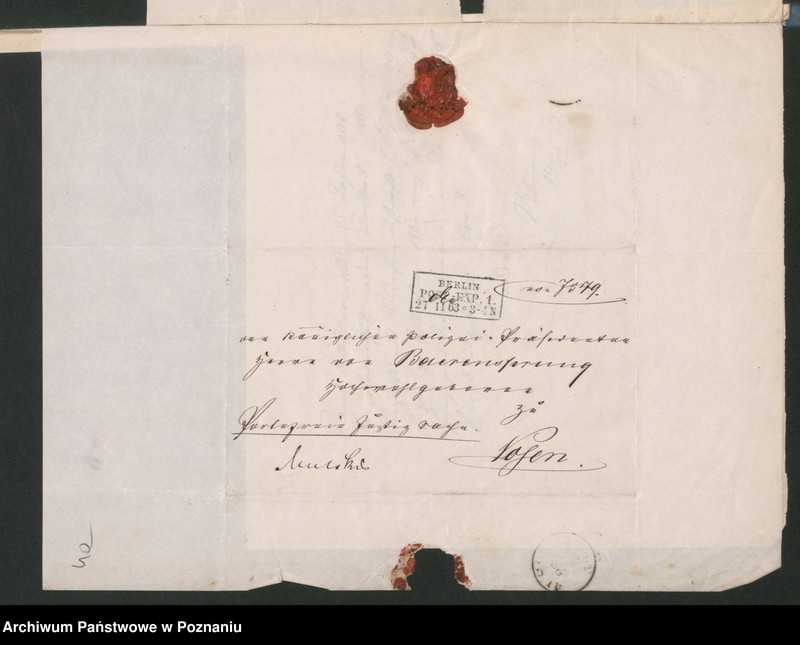 BERLIN
POST-EXP. 1.
27 11 63 * 3-4 N
No. 7579.
den Königlichen Polizei-Präsidenten
Herrn von Baerensprung
Hochwohlgeboren
zu
Portofreie Justiz Sache.
Posen.
Archiwum Państwowe w Poznaniu